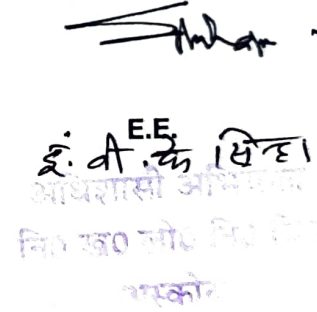 E.E.
इं. वी. के सिन्हा
अधिशासी अभियन्ता
नि० ख० लो० नि० वि०
अस्कोट